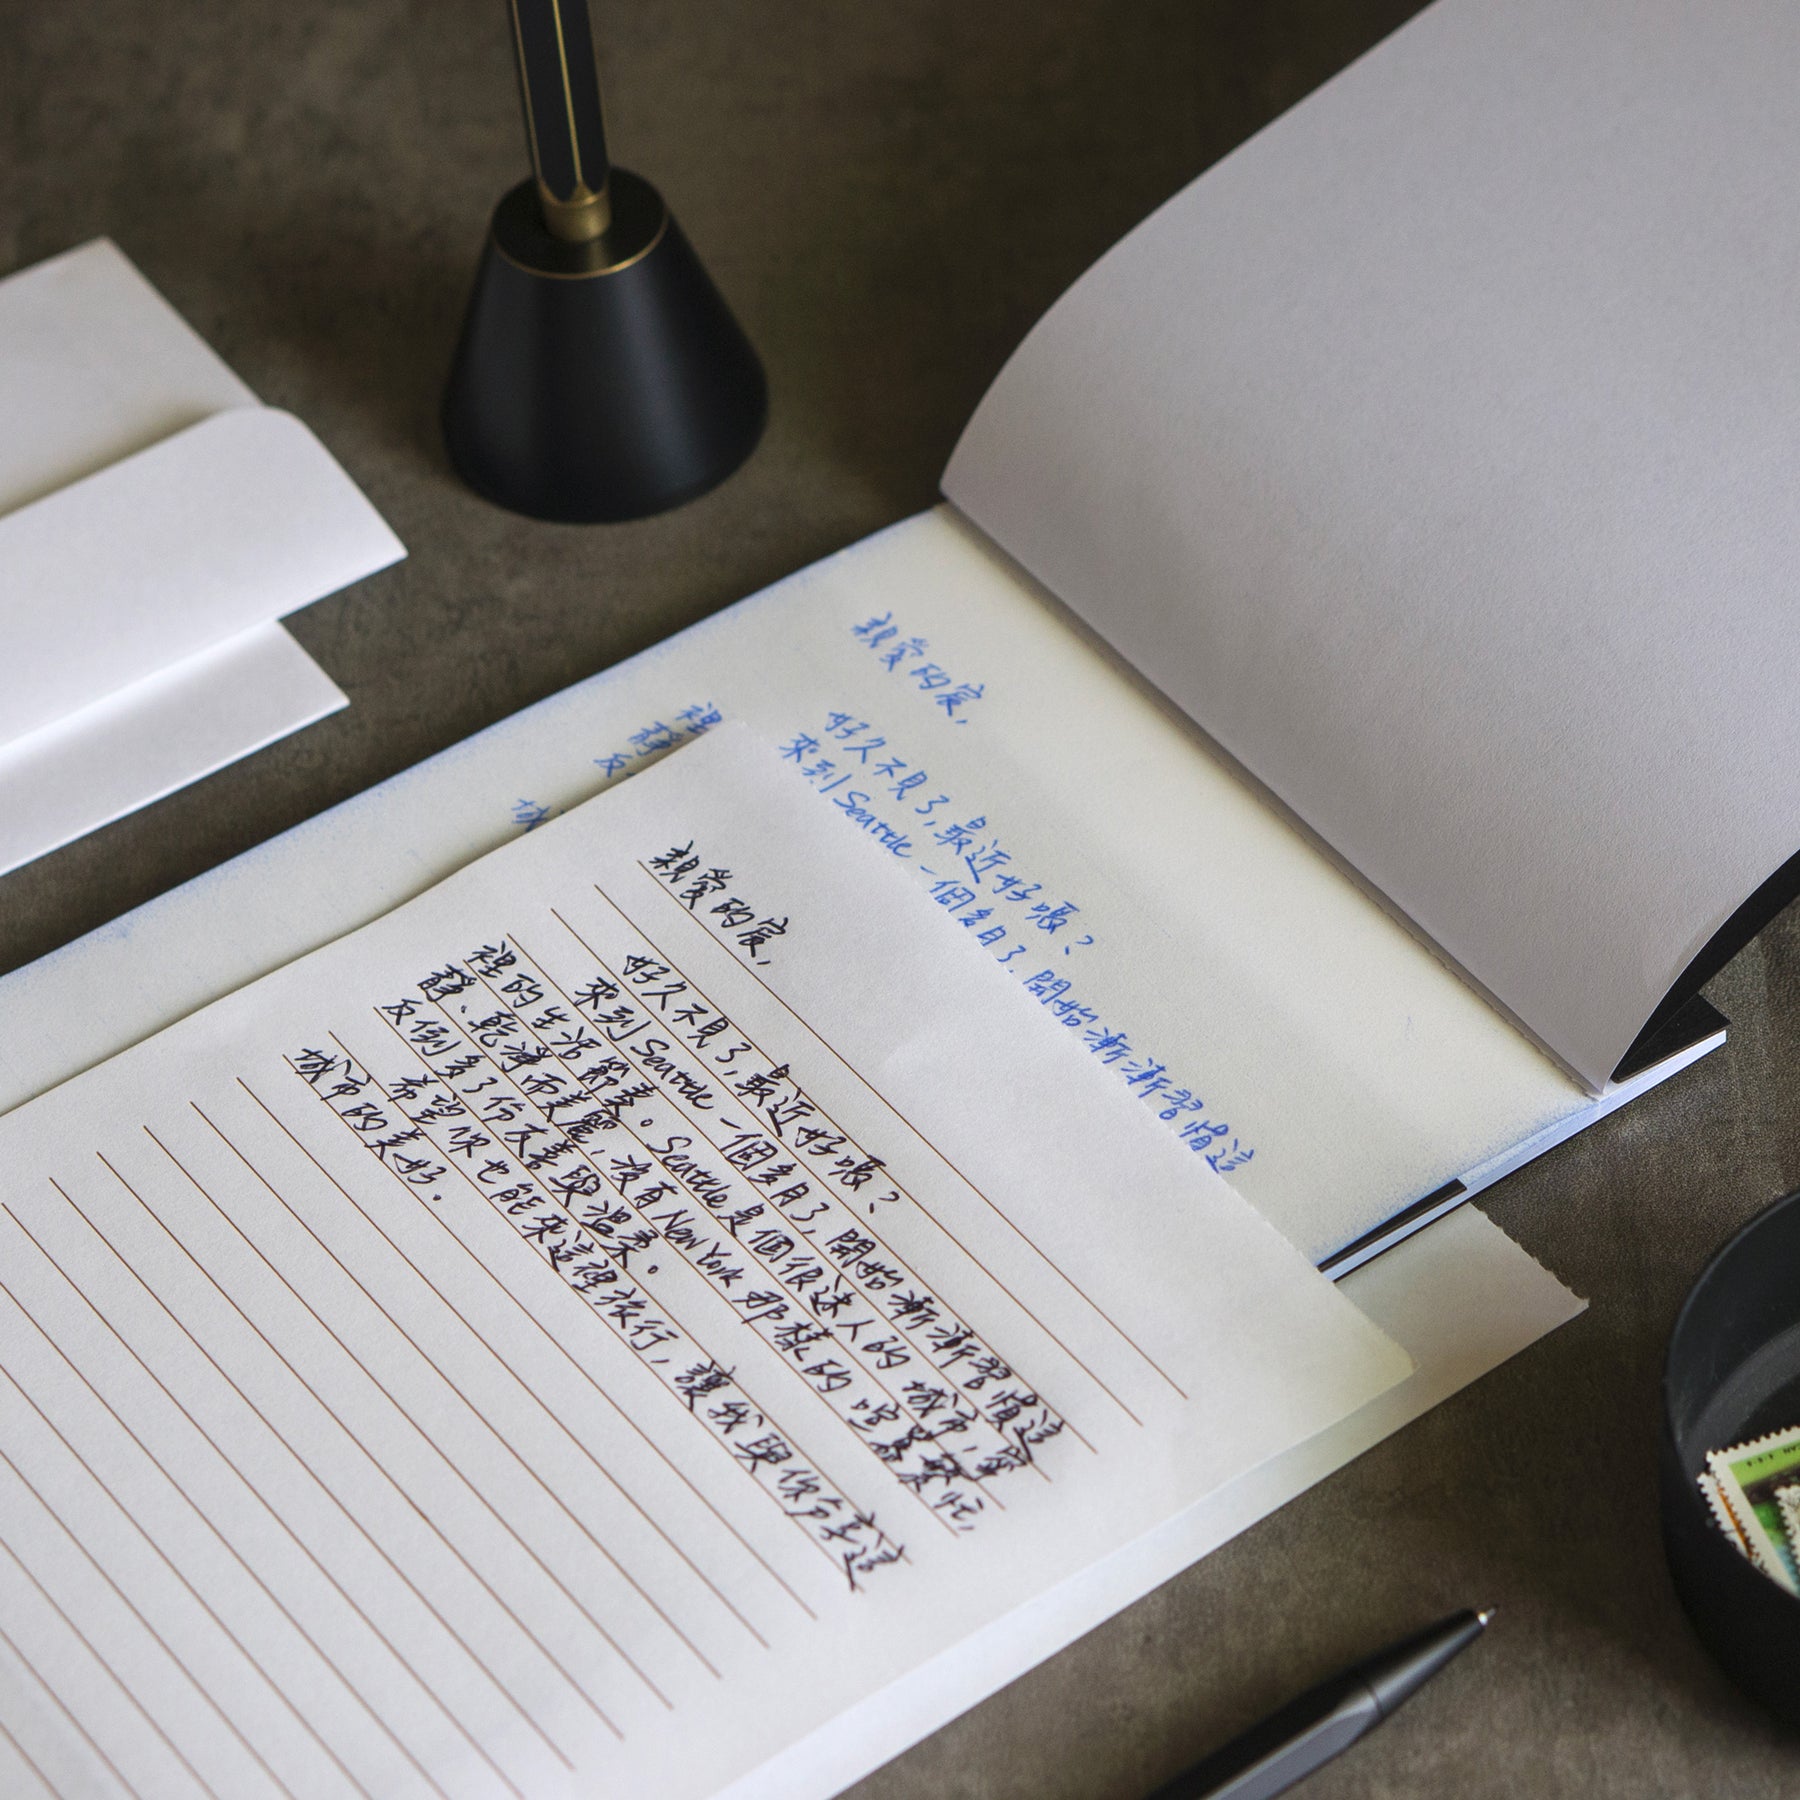 親愛的宸,
好久不見了,最近好嗎?
來到Seattle一個多月了,開始漸漸習慣這
裡
靜
反
城
親愛的宸,
好久不見了,最近好嗎?
來到Seattle一個多月了,開始漸漸習慣這
裡的生活節奏。Seattle是個很迷人的城市,寧
靜、乾淨而美麗,沒有New York那樣的喧囂繁忙,
反倒多了份友善與溫柔。
希望你也能來這裡旅行,讓我與你分享這
城市的美好.